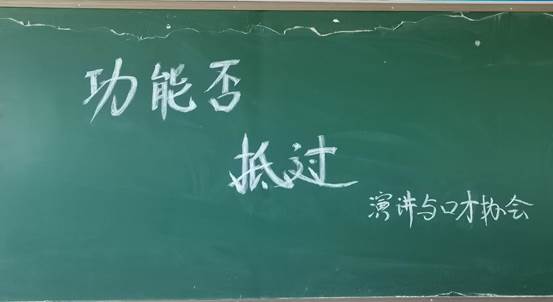 功能否
抵过
演讲与口才协会